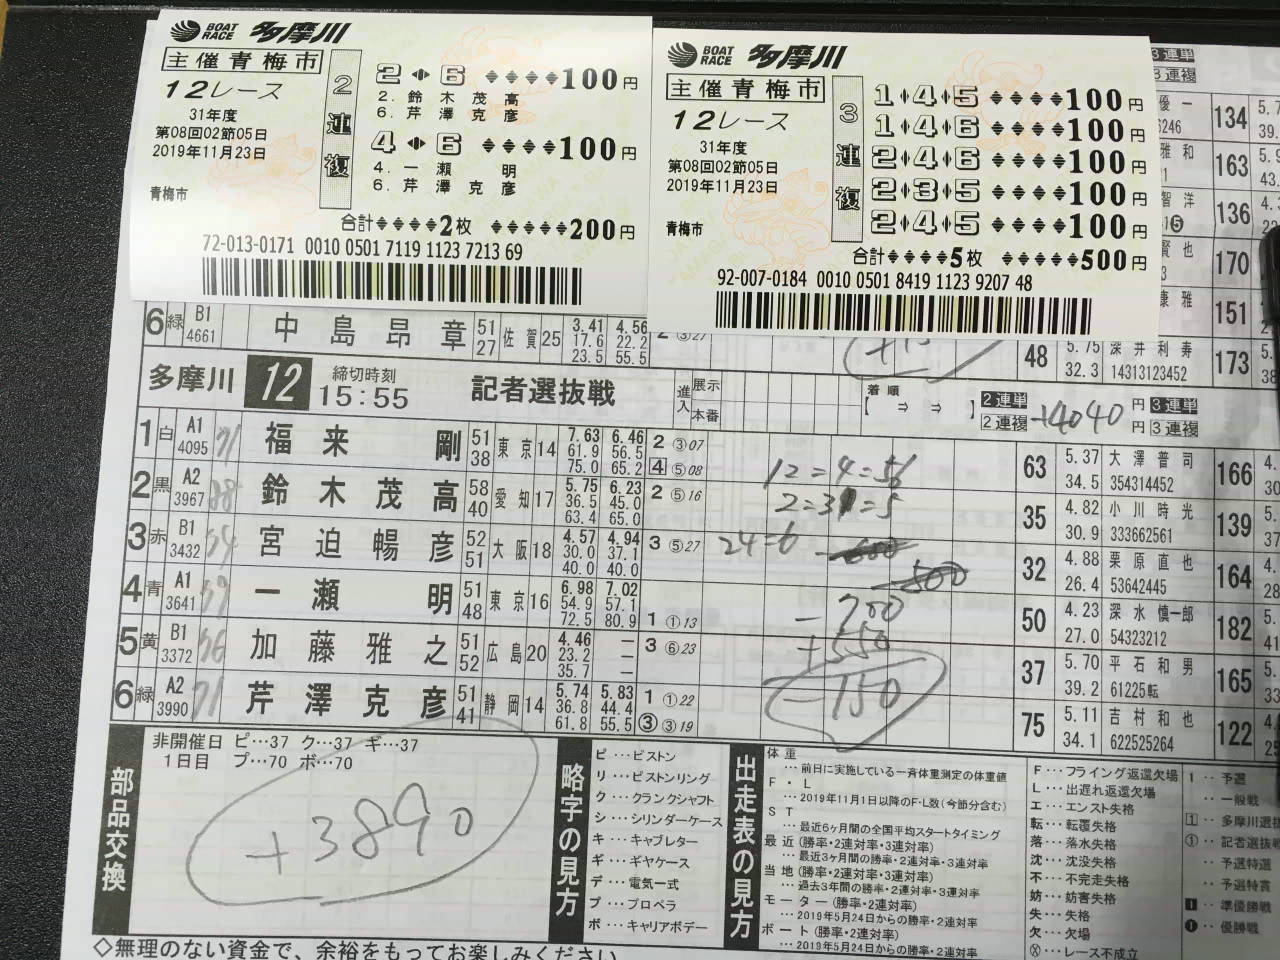 BOAT RACE 多摩川
主催青梅市
12レース
31年度
第08回02節05日
2019年11月23日
青梅市
2連複
2 6 100円
2. 鈴木茂高
6. 芹澤克彦
4 6 100円
4. 一瀬明
6. 芹澤克彦
合計 2枚 200円
72-013-0171 0010 0501 7119 1123 7213 69
BOAT RACE 多摩川
主催青梅市
12レース
31年度
第08回02節05日
2019年11月23日
青梅市
3連複
1 4 5 100円
1 4 6 100円
2 4 6 100円
2 3 5 100円
2 4 5 100円
合計 5枚 500円
92-007-0184 0010 0501 8419 1123 9207 48
3連単
3連複
134
163
136
170
151
6 緑 B1 4661 中島昂章 51 27 佐賀 25 3.41 17.6 23.5 4.56 22.2 55.5
48 5.75 32.3 深井利寿 14313123452 173
多摩川 12 締切時刻 15:55 記者選抜戦 進入 展示 本番 着順 [ ⇒ ⇒ ] 2連単 2連複 +4040 円 円 3連単 3連複
1 白 A1 4095 71 福来剛 51 38 東京 14 7.63 61.9 75.0 6.46 56.5 65.2 2 ③07 4 ⑤08 12=4=56 63 5.37 34.5 大澤普司 354314452 166
2 黒 A2 3967 鈴木茂高 58 40 愛知 17 5.75 36.5 63.4 6.23 45.0 65.0 2 ⑤16 35 4.82 30.9 小川時光 333662561 139
3 赤 B1 3432 54 宮迫暢彦 52 51 大阪 18 4.57 30.0 40.0 4.94 37.1 40.0 3 ⑤27 24=6 32 4.88 26.4 栗原直也 53642445 164
4 青 A1 3641 59 一瀬明 51 48 東京 16 6.98 54.9 72.5 7.02 57.1 80.9 1 ①13 -700 50 4.23 27.0 深水慎一郎 54323212 182
5 黄 B1 3372 56 加藤雅之 51 52 広島 20 4.46 23.2 35.7 — — — 3 ⑥23 +550 37 5.70 39.2 平石和男 61225転 165
6 緑 A2 3990 71 芹澤克彦 51 41 静岡 14 5.74 36.8 61.8 5.83 44.4 55.5 1 ①22 ③ ③19 -150 75 5.11 34.1 吉村和也 622525264 122
部品交換
非開催日 ピ…37 ク…37 ギ…37
1日目 プ…70 ボ…70
+3890
略字の見方
ピ…ピストン
リ…ピストンリング
ク…クランクシャフト
シ…シリンダーケース
キ…キャブレター
ギ…ギヤケース
デ…電気一式
プ…プロペラ
ボ…キャリアボデー
出走表の見方
体重
…前日に実施している一斉体重測定の体重値
F・L
…2019年11月1日以降のF・L数(今節分含む)
ST
…最近6ヶ月間の全国平均スタートタイミング
最近(勝率・2連対率・3連対率)
…最近3ヶ月間の勝率・2連対率・3連対率
当地(勝率・2連対率・3連対率)
…過去3年間の勝率・2連対率・3連対率
モーター(勝率・2連対率)
…2019年5月24日からの勝率・2連対率
ボート(勝率・2連対率)
…2019年5月24日からの勝率・2連対率
F…フライング返還欠場
L…出遅れ返還欠場
エ…エンスト失格
転…転覆失格
落…落水失格
沈…沈没失格
不…不完走失格
妨…妨害失格
失…失格
欠…欠場
Ⓧ…レース不成立
1‥予選
‥一般戦
1‥多摩川選
①‥記者選抜戦
‥予選特選
‥予選特賞
1‥準優勝戦
❶‥優勝戦
◇無理のない資金で、余裕をもってお楽しみください